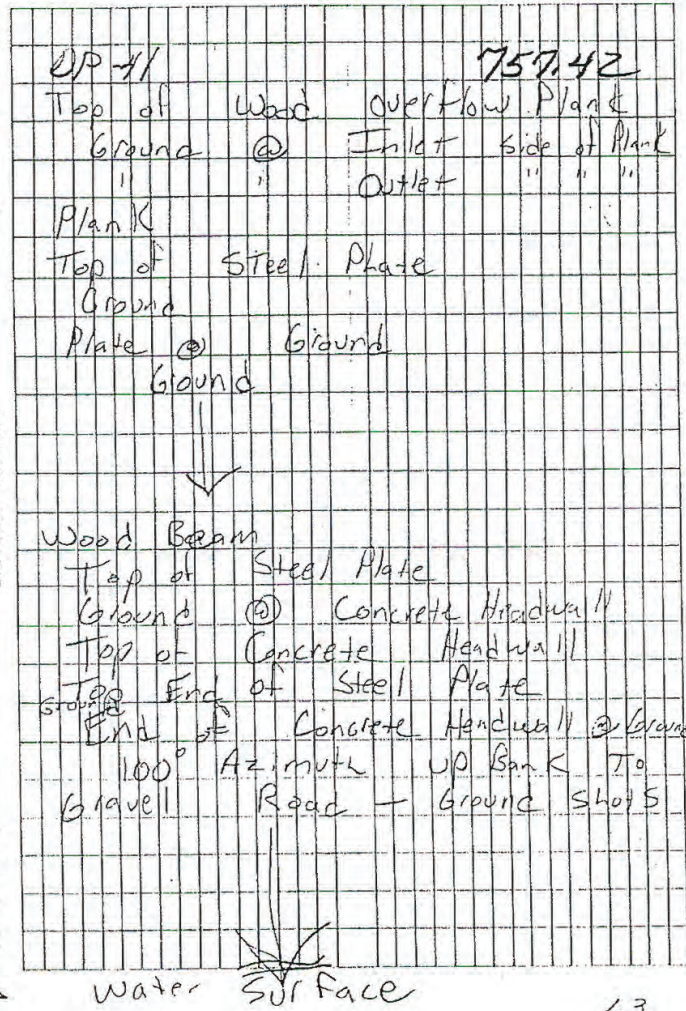 DP-41 757.42
Top of Wood overflow Plank
Ground @ Inlet side of Plank
" " Outlet " " "
Plank
Top of STeel Plate
Ground
Plate @ Ground
Ground
Wood Beam
Top of Steel Plate
Ground @ Concrete Headwall
Top of Concrete Headwall
Top End of Steel Plate
Ground
End of Concrete Headwall @ Ground
100° Azimuth up Bank To
Gravell Road - Ground Shots
Water Surface
63